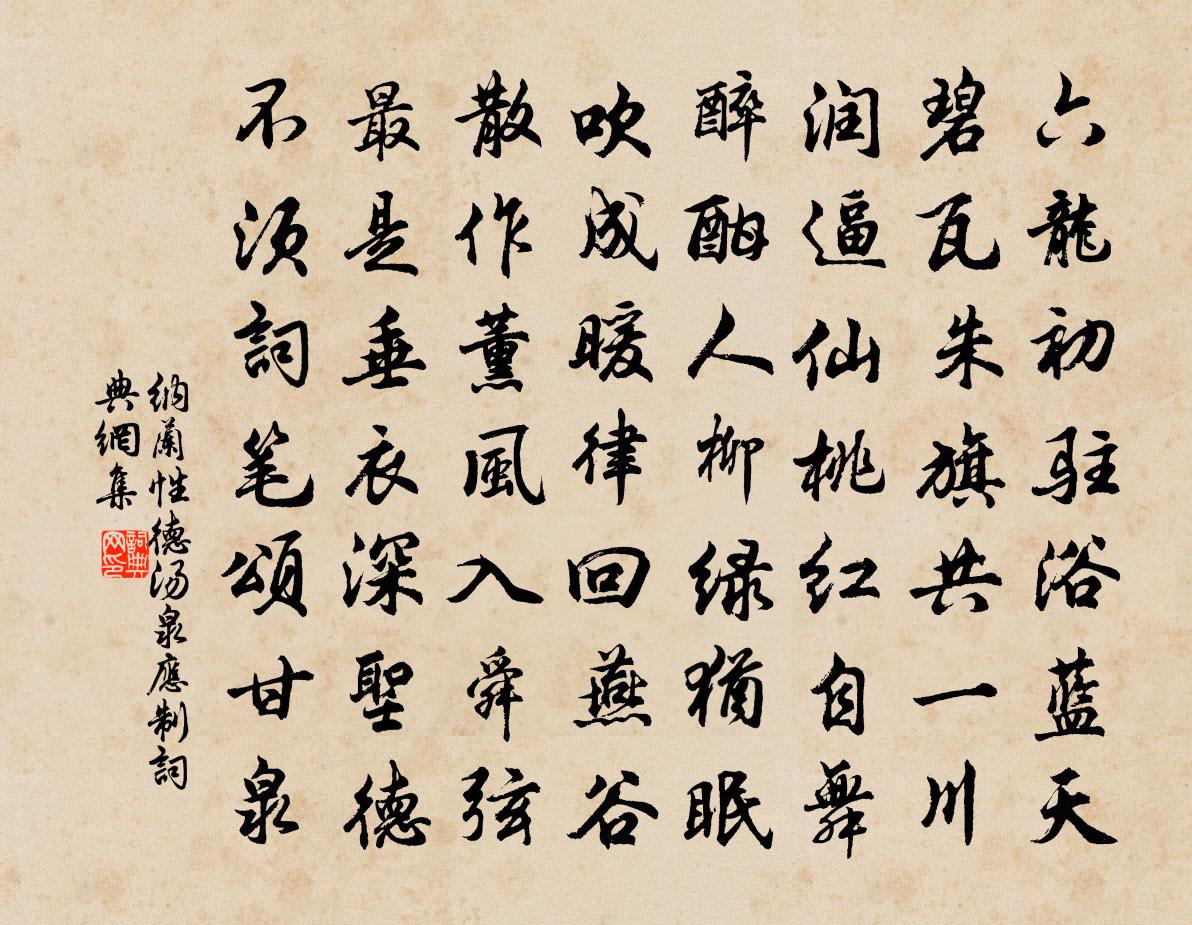 六龍初驻浴蓝天
碧瓦朱旗共一川
润逼仙桃红自舞
醉酣人柳绿犹眠
吹成暖律回燕谷
散作薰風入舜弦
最是垂衣深聖德
不须詞笔頌甘泉
纳蘭性德汤泉應制詞
典網集
詞典网印